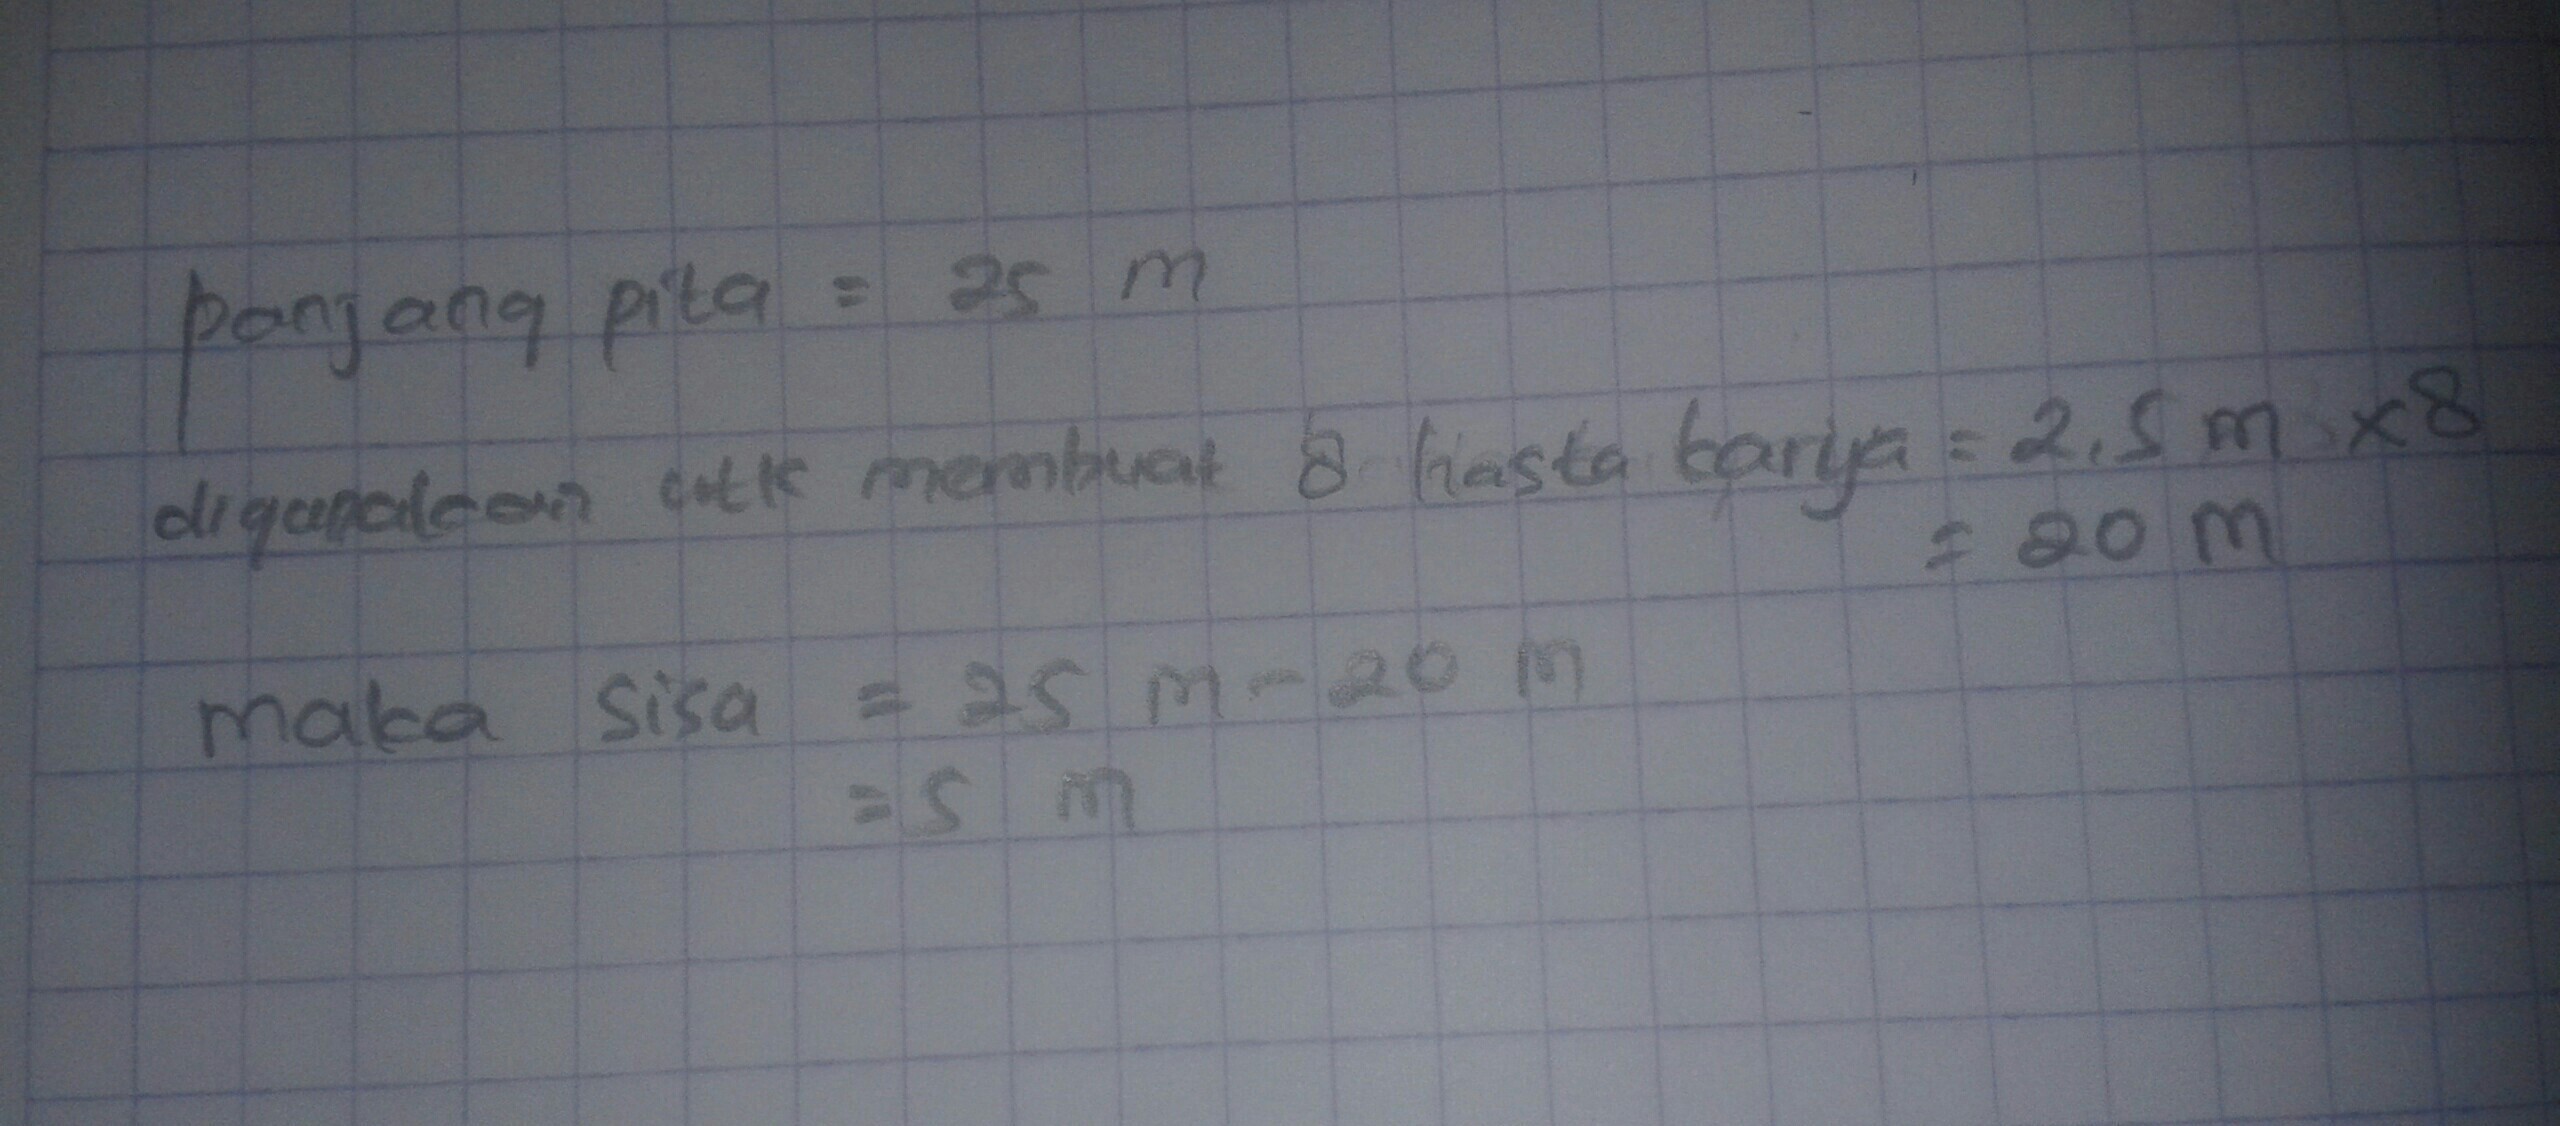 panjang pita = 25 m
digunakan utk membuat 8 hasta karya = 2,5 m x 8
= 20 m
maka sisa = 25 m - 20 m
= 5 m